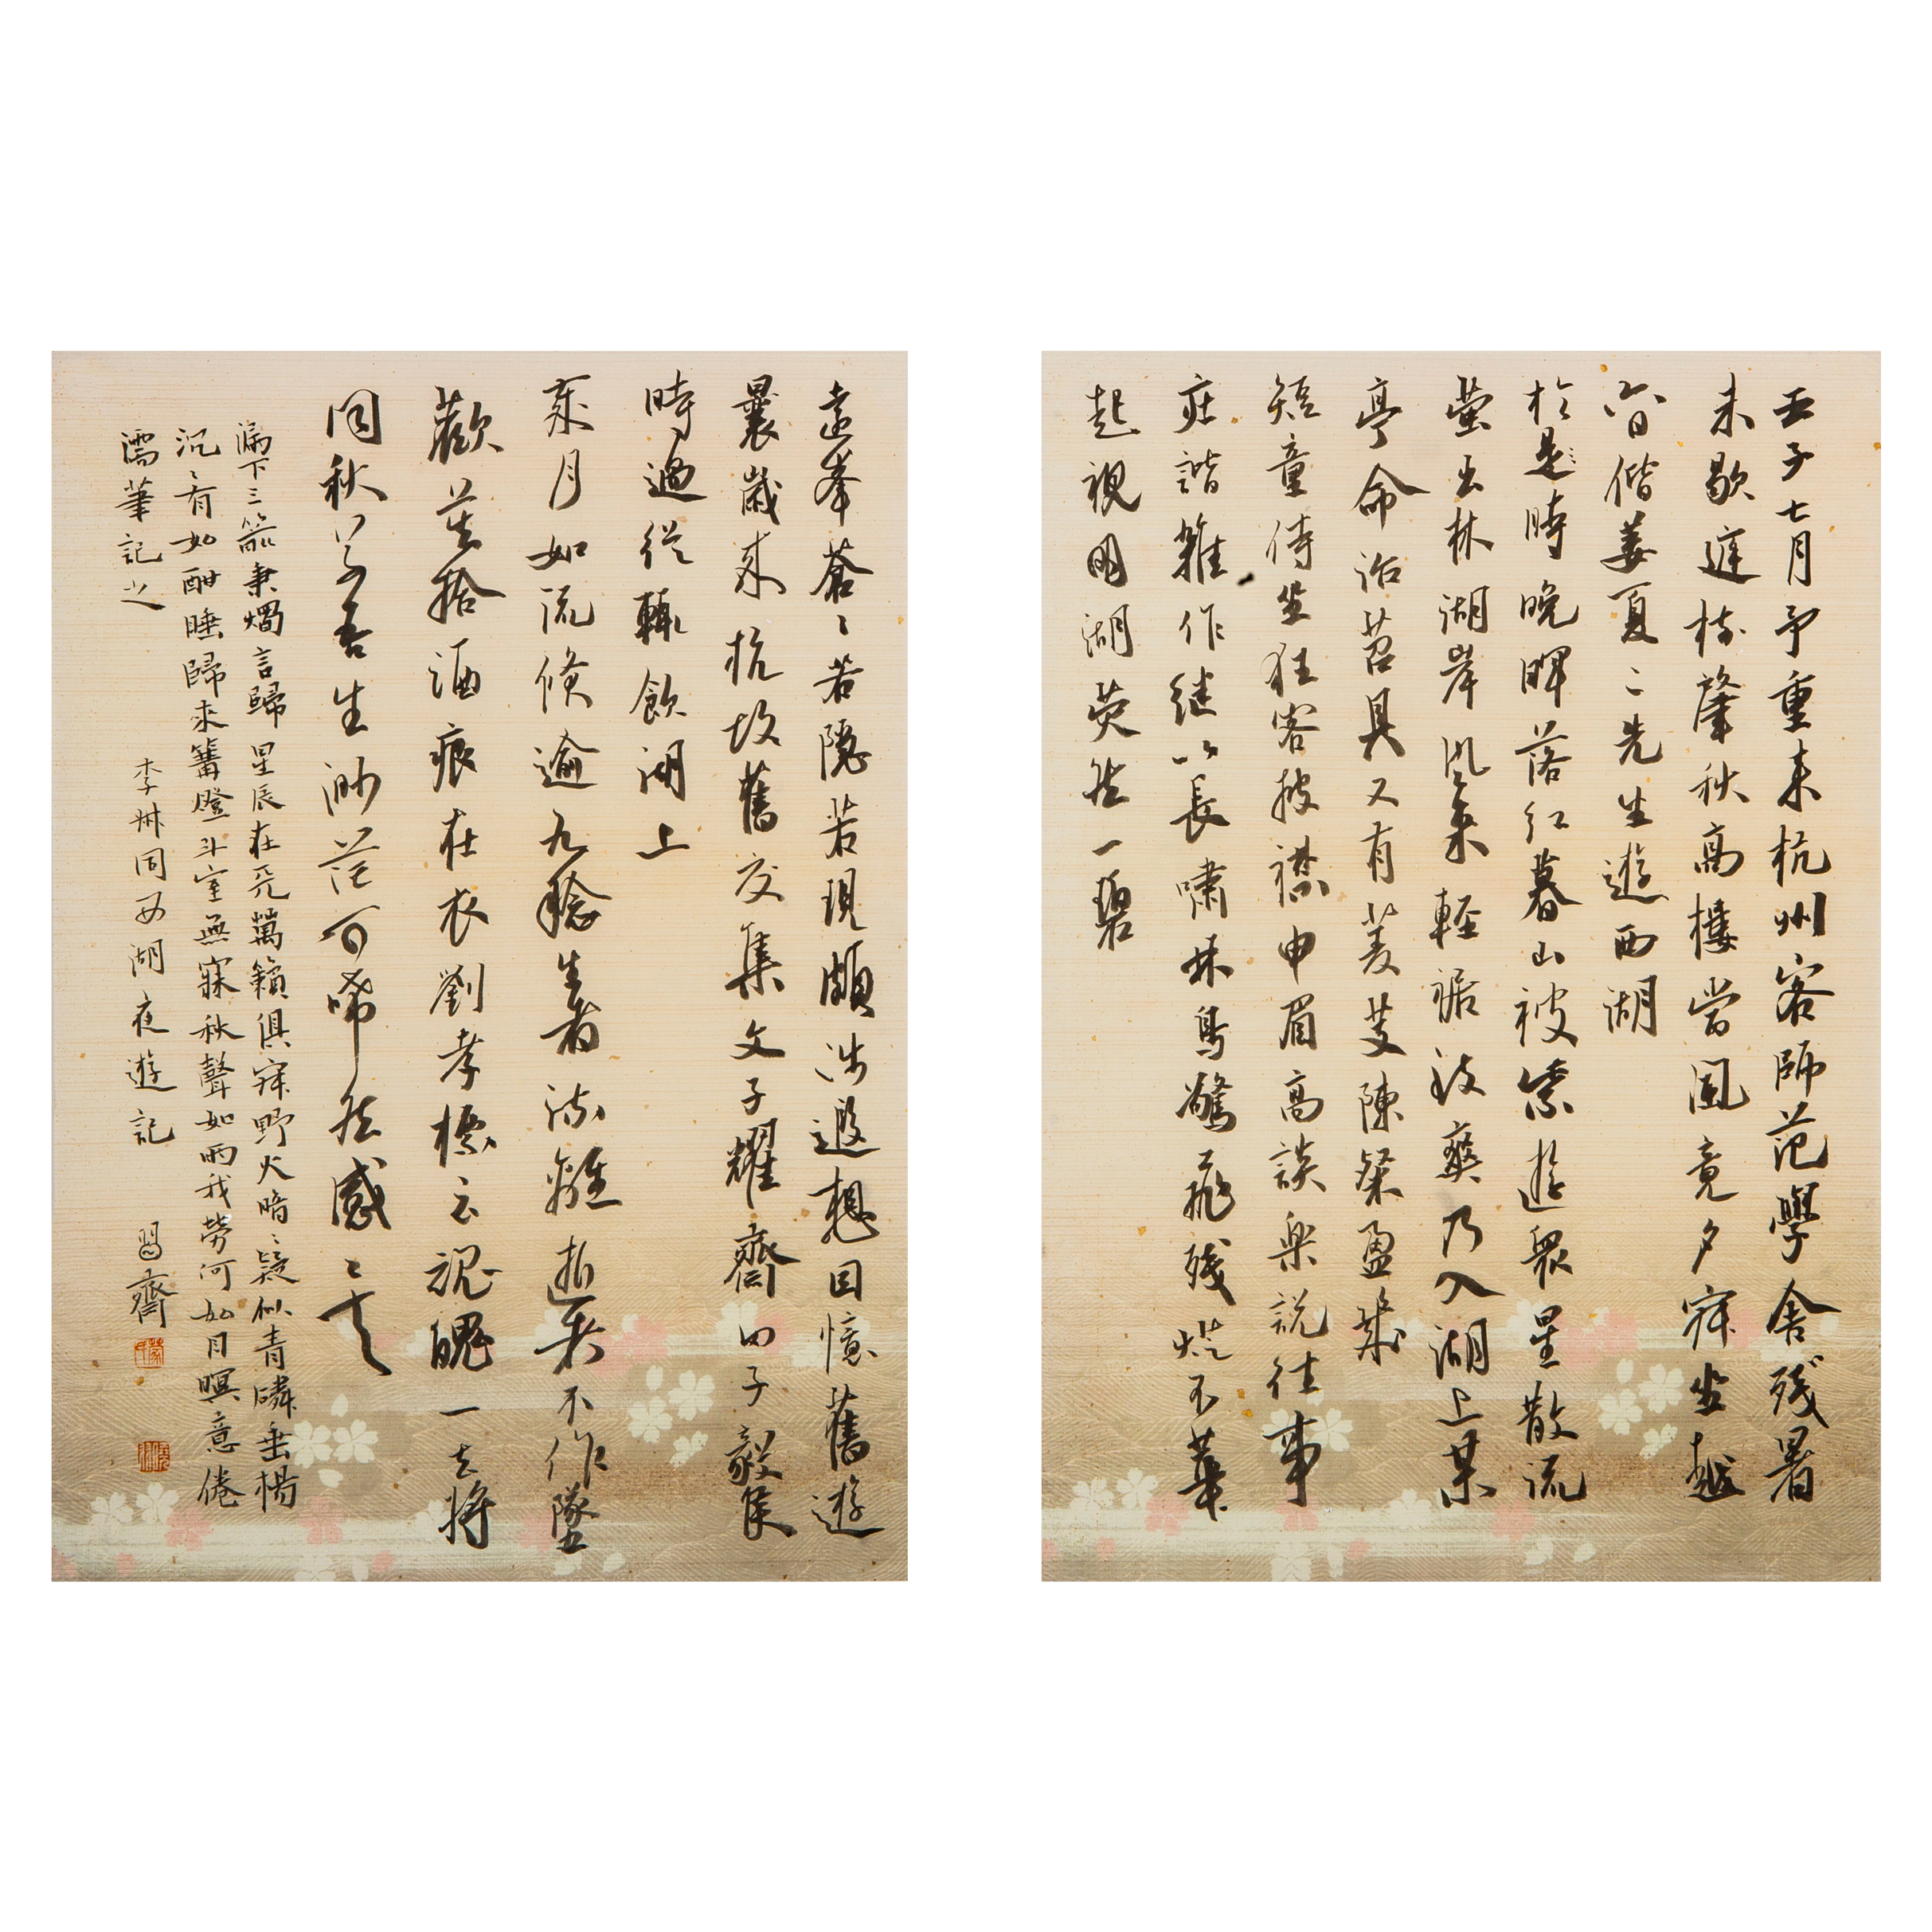 壬子七月予重来杭州客師范學舍残暑
未歇庭樹肇秋高樓當風竟夕寂坐越
六日偕姜夏二先生遊西湖
於是時晚暉落紅暮山被紫遊衆星散流
螢出林湖岸風來輕裾致爽乃入湖上某
亭命治茗具又有菱芰陳粲盈幾
短童侍坐狂客披襟申眉高談楽説往事
庄諧雜作继以長嘯林鳥驚飛残燈不華
起視明湖熒然一碧
遠峯蒼〻若隱若現頗涉遐想因憶舊遊
曩歲來杭故舊交集文子耀齋田子毅侯
時過從輒飲湖上
歲月如流倏逾九稔生者流離逝者不作墜
歡莫拾酒痕在衣劉孝標云魂魄一去將
同秋草吾生渺茫可唏然感〻矣
漏下三箭秉燭言歸星辰在天萬籟俱寂野火暗〻疑似青磷垂楊
沉〻有如酣睡歸來篝燈斗室無寐秋聲如雨我勞何如目瞑意倦
濡筆記之
李叔同西湖夜遊記